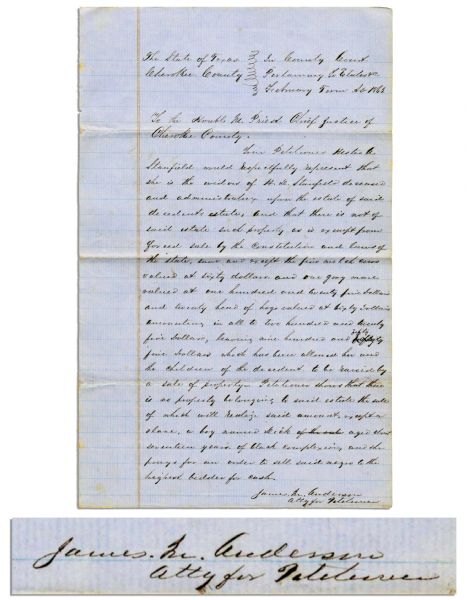 The State of Texas In County Court
Cherokee County Pertaining to Estates
February Term AD 186
To the Honble M. Priest Chief Justice of
Cherokee County.
Your Petitioner Hester A.
Stanfield would respectfully represent that
she is the widow of H. H. Stanfield deceased
and administratrix upon the estate of said
decedents estate, and that there is not of
said estate such property as is exempt from
forced sale by the Constitution and laws of
the state, save and except the five cows
valued at sixty dollars and one gray mare
valued at one hundred and twenty five Dollars
and twenty head of hogs valued at Dollars
amounting in all to two hundred and twenty
five Dollars, leaving nine hundred and
five Dollars which has been allowed her and
the children of the decedent to be raised by
a sale of property. Petitioner shows that there
is no property belonging to said estate the sale
of which will realize said amount, except a
slave, a boy named Dick aged about
seventeen years of black complexion, and she
prays for an order to sell said negro to the
highest bidder for cash.
James M. Anderson
Atty for Petitioner
James. M. Anderson
Atty for Petitioner